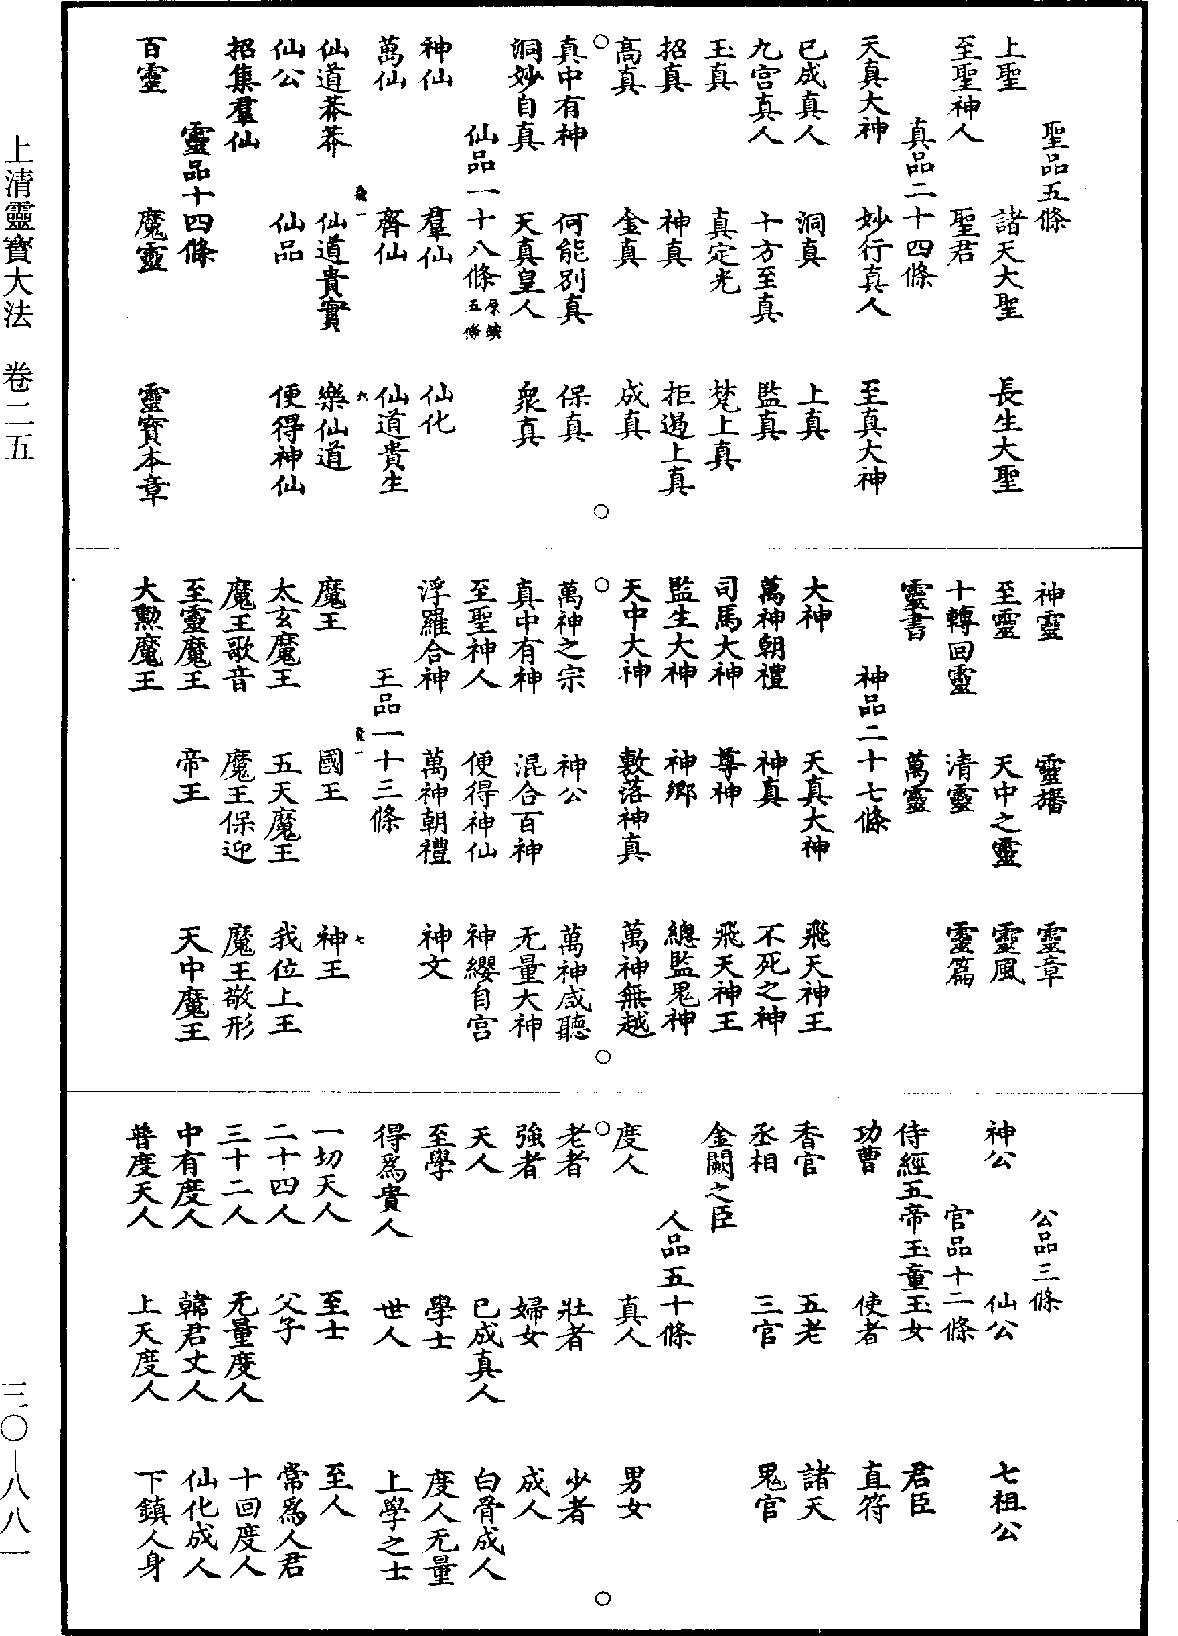 上清靈寶大法　卷二五
三〇—八八一
聖品五條
上聖　諸天大聖　長生大聖
至聖神人　聖君
真品二十四條
天真大神　妙行真人　至真大神
已成真人　洞真　上真
九宫真人　十方至真　監真
玉真　真定光　梵上真
招真　神真　拒遏上真
高真　金真　成真
真中有神　何能别真　保真
洞妙自真　天真皇人　衆真
仙品一十八條原缺五條
神仙　羣仙　仙化
萬仙　齊仙　仙道貴生
仙道莽莽　仙道貴實　樂仙道
仙公　仙品　便得神仙
招集羣仙
靈品十四條
百靈　魔靈　靈寶本章
神靈　靈旛　靈章
至靈　天中之靈　靈風
十轉回靈　清靈　靈篇
靈書　萬靈
神品二十七條
大神　天真大神　飛天神王
萬神朝禮　神真　不死之神
司馬大神　尊神　飛天神王
監生大神　神鄉　總監鬼神
天中大神　敷落神真　萬神無越
萬神之宗　神公　萬神咸聽
真中有神　混合百神　无量大神
至聖神人　便得神仙　神纓自宫
浮羅合神　萬神朝禮　神文
王品一十三條
魔王　國王　神王
太玄魔王　五天魔王　我位上王
魔王歌音　魔王保迎　魔王敬形
至靈魔王　帝王　天中魔王
大勲魔王
公品三條
神公　仙公　七祖公
官品十二條
侍經五帝玉童玉女　君臣
功曹　使者　直符
香官　五老　諸天
丞相　三官　鬼官
金闕之臣
人品五十條
度人　真人　男女
老者　壯者　少者
強者　婦女　成人
天人　已成真人　白骨成人
至學　學士　度人无量
得爲貴人　世人　上學之士
一切天人　至士　至人
二十四人　父子　常爲人君
三十二人　无量度人　十回度人
中有度人　韓君丈人　仙化成人
普度天人　上天度人　下鎮人身